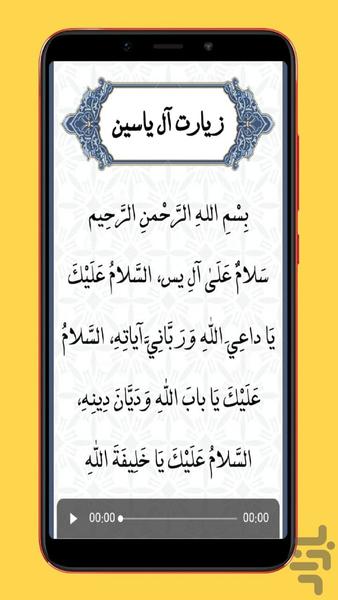 زیارت آل یاسین
بِسْمِ اللهِ الرَّحْمنِ الرَّحِیم
سَلامٌ عَلَىٰ آلِ يس، السَّلامُ عَلَيْكَ
يَا داعِيَ اللّٰهِ وَرَبَّانِيَّ آياتِهِ، السَّلامُ
عَلَيْكَ يَا بابَ اللّٰهِ وَدَيَّانَ دِينِهِ،
السَّلامُ عَلَيْكَ يَا خَلِيفَةَ اللّٰهِ
00:00 00:00
بازار